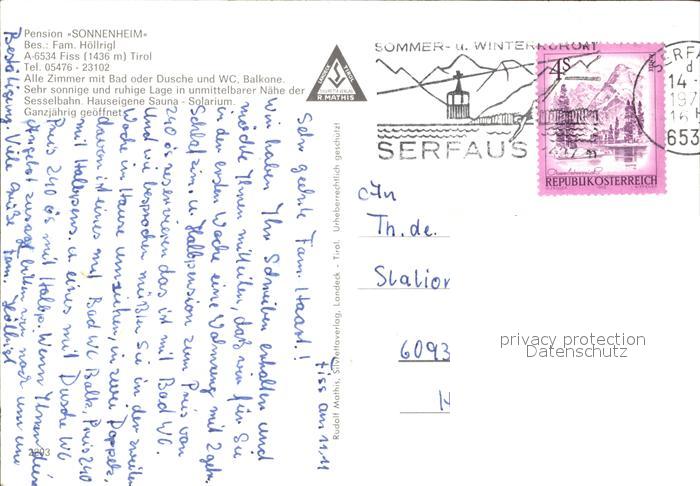 Pension »SONNENHEIM«
Bes.: Fam. Höllrigl
A-6534 Fiss (1436 m) Tirol
Tel. 05476 - 23102
Alle Zimmer mit Bad oder Dusche und WC, Balkone.
Sehr sonnige und ruhige Lage in unmittelbarer Nähe der
Sesselbahn. Hauseigene Sauna - Solarium.
Ganzjährig geöffnet
R. MATHIS
SOMMER- u. WINTERKURORT
SERFAUS
4S
REPUBLIK ÖSTERREICH
SERFA
14.-
197
16
653
Fiss am 11.11
Sehr geehrte Fam. Haast!
Wir haben Ihr Schreiben erhalten und
möchte Ihnen mitteilen, daß wir für Sie
in der ersten Woche eine Wohnung mit 2 getr.
Schlafzim. u. Halbpension zum Preis von
240 ös reservieren das ist mit Bad WC.
Und wie besprochen müßten Sie in der zweiten
Woche im Hause umziehen, in zwei Doppelz,
davon ist eines mit Bad WC Balk, Preis 240
mit Halbpens. u eines mit Dusche WC
Preis 240 ös mit Halbp. Wenn Ihnen dies
Angebot zusagt bitten wir noch um eine
Bestätigung. Viele Grüße Fam. Höllrigl
Rudolf Mathis, Silvrettaverlag, Landeck - Tirol. Urheberrechtlich geschützt
2203
An
Th. de.
Station
6093
privacy protection
Datenschutz